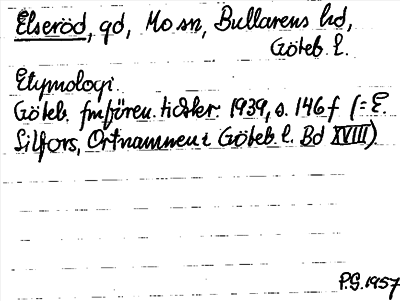 Elseröd, gd, Mo sn, Bullarens hd,
Göteb. l.
Etymologi.
Göteb. fmfören. tidskr. 1939, s. 146 f (= E.
Silfors, Ortnamnen i Göteb. l. Bd XVIII)
P.G. 1957